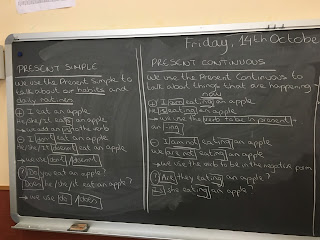 Friday, 14th Octobe
PRESENT SIMPLE
We use the Present Simple to
talk about our habits and
daily routines
+ I eat an apple.
He/she/it eats an apple
→ we add an s to the verb
- I don't eat an apple
He/she/it doesn't eat an apple
→ we use don't/doesn't
? Do you eat an apple?
Does he/she/it eat an apple?
→ we use do/does
PRESENT CONTINUOUS
We use the Present Continuous to
talk about things that are happening
now
+ I am eating an apple
He is eating an apple
→ we use the verb to be in present +
an -ing
- I am not eating an apple
We are not eating an apple
→ we use the verb to be in the negative form
? Are they eating an apple?
Is she eating an apple?